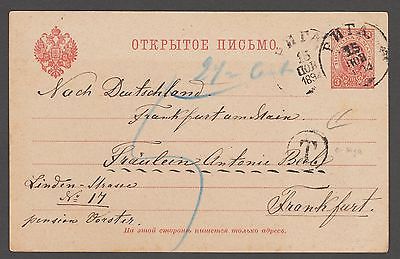 ОТКРЫТОЕ ПИСЬМО.
РИГА
15
НОЯ
189
РИГА
15
НОЯ
Nach Deutschland
Frankfurt am Main
T
Fräulein Antonie
Linden-Strasse
No 17
pension Vorster
Frankfurt.
На этой сторонѣ пишется только адресъ.